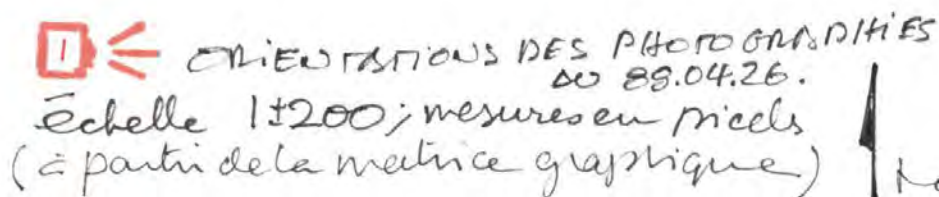 1 ORIENTATIONS DES PHOTOGRAPHIES
DU 88.04.26.
échelle 1±200; mesures en pieds
(à partir de la matrice graphique)